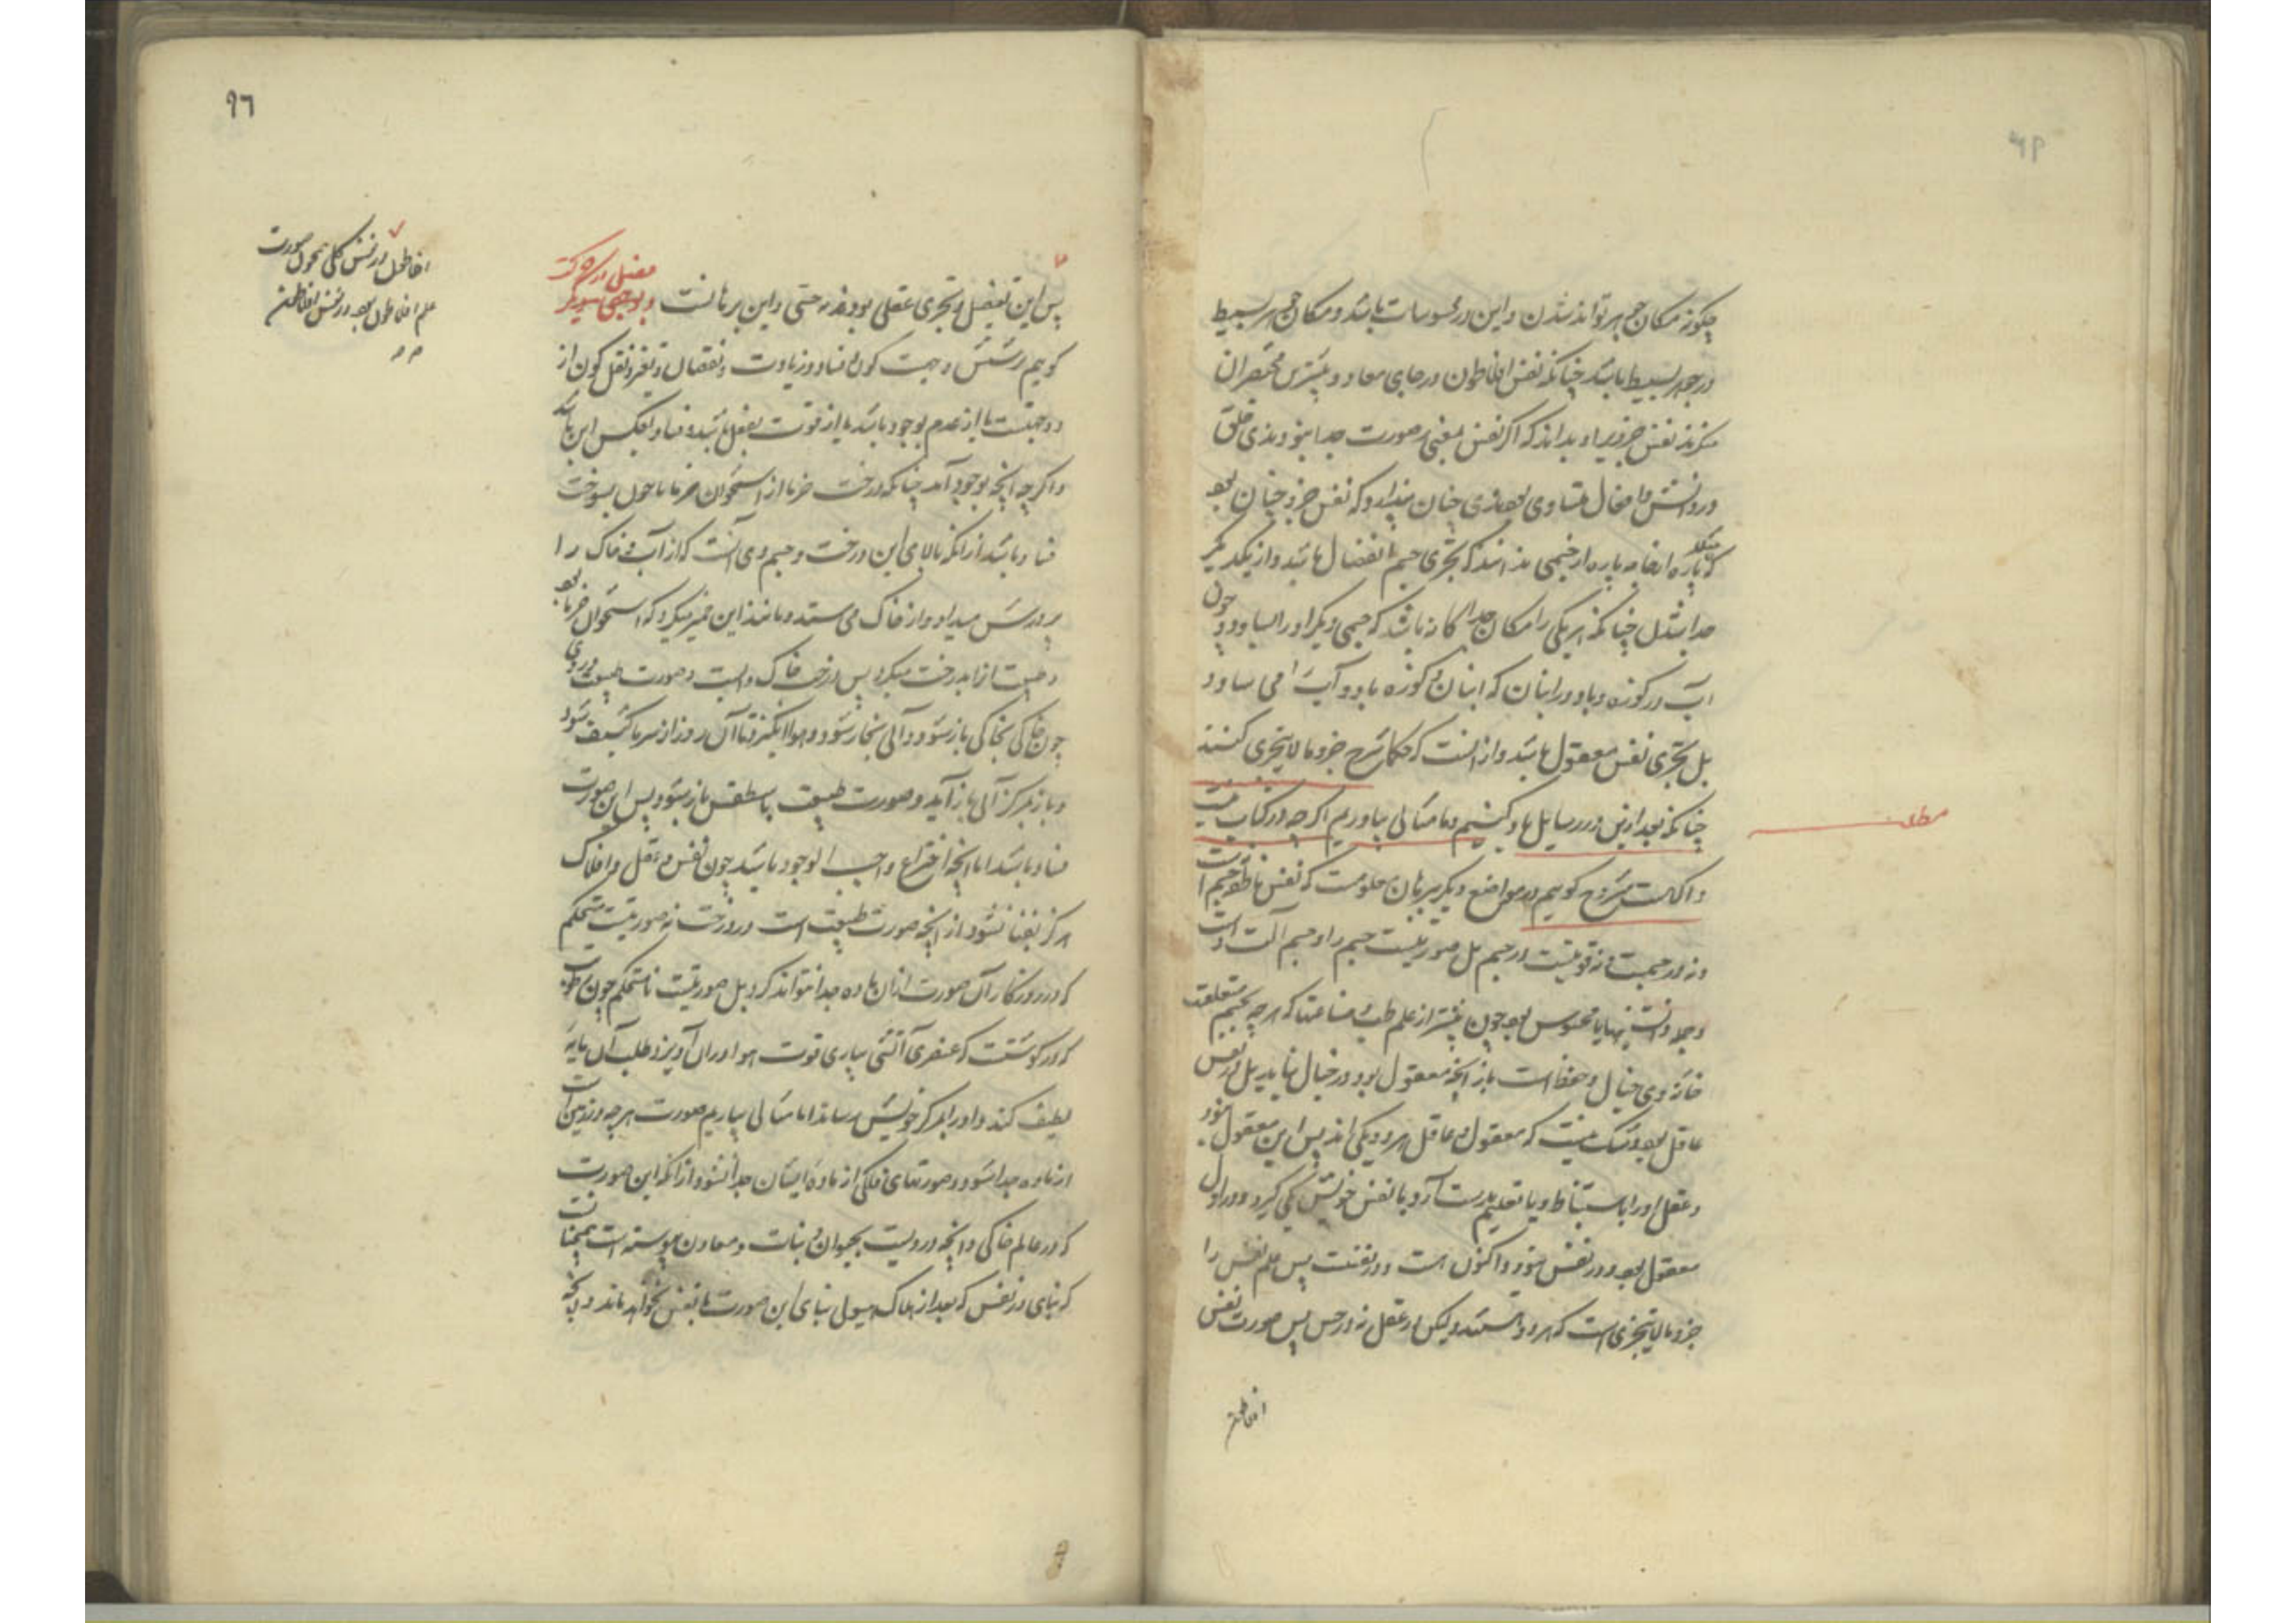 چگونه مکان جوهر تواند شدن و این در محسوسات باشد و مکان جوهر بسیط
در جوهر بسیط باشد چنانکه نفس افلاطون در جای معاد و بیشترین مختصران
منکرند نفس جزویرا و بدانند که اگر نفس بمعنی و صورت جدا بنودندی خلق
در دانش و افعال متساوی بودندی چنان پندارد که نفس جزو چنان بود
که پاره ازجامه پاره از جسمی ندانند که تجزی جسم بانفصال باشد و از یکدیگر
جدا شدن چنانکه هر یکی را مکان جداگانه باشد که جسمی دیگر او را بساود چون
آب در کوزه و باد در انبان که انبان و کوزه باد و آب را می ساود
بل تجزی نفس معقول باشد و از اینست که حکما شرح جزو ما لا یتجزی کنند
چنانکه بعد ازین در رسایل یاد کنیم و ما مثالی بیاوریم اگر چه در کتاب نیست
و آنک مشروح گوییم در مواضع دیگر ببرهان معلومست که نفس ناطقه جسم است
و نه در جسمیت و نه قوتیست در جسم بل صورتیست جسم را و جسم آلت و است
وجود دانستنیها یا محسوس بود چون بیشتر از علم طب و صناعتها که هر چه بجسم متعلقست
خانه وی خیال و حفظ است باز آنچه معقول بود در خیال نیاید بل در نفس
عاقل بود و شک نیست که معقول و عاقل هر دو یکی اند پس این معقول بنود
و عقل او را باستنباط و یا تعلیم بدست آرد و با نفس خویش یکی گیرد و در اول
معقول بود و در نفس بنود و اکنون است و در نفست پس علم نفس را
جزو ما لا یتجزی است که هر دو هستند و لیکن در عقل نه در حس پس صورت نفس
افلاطون
مطلب
٩٦
پس این تفصیل و تجزی عقلی بود نه حسی و این برهانست و بوجهی دیگر
گوییم پرسش و جهت کون و فساد و زیادت و نقصان و تغیر و نقل کون از
دو جهتست یا از عدم بوجود باشد یا از قوت بفعل باشد و فساد بعکس این باشد
و اگر چه آنچه بوجود آمد چنانکه درخت خرما از استخوان خرما یا چون بسوخت
فساد باشد از آنکه بالای این درخت و جسم وی آنست که از آب و خاک را
پرورش میداد و از خاک می ستد و مانند این خمیر میکرد که استخوان خرما بود
و طبیعت ازآن درخت میکرد پس درخت خاک و آبست و صورت طبیعت در وی
چون خاکی بخاکی باز شود و آبی بخار شود و هوا انگیزد تا آن روز از سرما کثیف شود
و باز بمرکز آبی باز آید و صورت طبیعت باسطقس باز شود پس این صورت
فساد باشد اما آنچه اختراع واجب الوجود باشد چون نفس و عقل و افلاک
هرگز بفنا نشود از آنچه صورت طبیعت است در درخت نه صورتیست مستحکم
که در روزگار آن صورت از آن ماده جدا نتواند کرد بل صورتیست نامستحکم چون
که در گوشتست که عنصری آتشی بیاری قوت هوا در آن آویزد و طلب آن مایه
لطیف کند و او را بمرکز خویش رساند اما مثالی بیاریم صورت هر چه در زمین است
از ماده جدا شود و صورتهای فلکی از ماده ایشان جدا نشود از آنکه این صورت
که در عالم خاکی و آنچه درویست بحیوان و نبات و معادن پیوسته است همچنانست
که بنای در نفس که بعد از هلاک هیولی بنای این صورت با نفس نخواهد ماند و آنچه
افلاطون در نفس کلی همچون صورت
علم افلاطون بود در نفس افلاطون